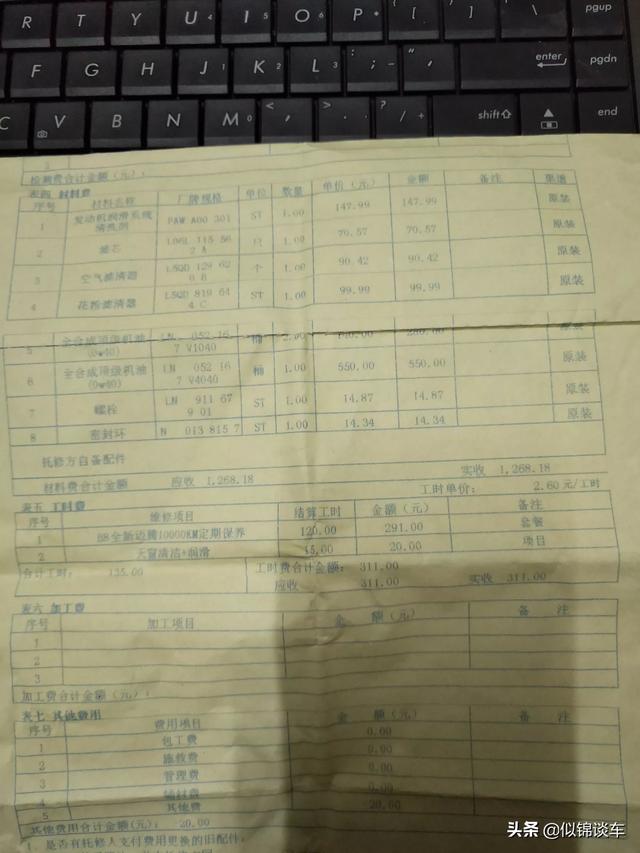 R T Y U 4 I 5 O 6 P * [ { ] } \ pgup
F G H J 1 K 2 L 3 ; : - ' " enter pgdn
C V B N M 0 < , > . ? / + shift end
检测费合计金额(元):
表四 材料费
序号 材料名称 厂牌规格 单位 数量 单价(元) 金额 备注 渠道
1 发动机润滑系统清洗剂 PAW A00 301 ST 1.00 147.99 147.99 原装
2 滤芯 L06L 115 562 A 只 1.00 70.57 70.57 原装
3 空气滤清器 L5QD 129 620 B 个 1.00 90.42 90.42 原装
4 花粉滤清器 L5QD 819 644 C ST 1.00 99.99 99.99 原装
5 全合成顶级机油(0w40) LN 052 167 V1040 桶 2.00 140.00 280.00 原装
6 全合成顶级机油(0w40) LN 052 167 V4040 桶 1.00 550.00 550.00 原装
7 螺栓 LN 911 679 01 ST 1.00 14.87 14.87 原装
8 密封环 N 013 815 7 ST 1.00 14.34 14.34 原装
托修方自备配件
材料费合计金额 应收 1,268.18 实收 1,268.18
表五 工时费 工时单价: 2.60 元/工时
序号 维修项目 结算工时 金额(元) 备注
1 B8全新迈腾10000KM定期保养 120.00 291.00 套餐
2 天窗清洁+润滑 15.00 20.00 项目
合计工时: 135.00 工时费合计金额: 311.00
应收 311.00 实收 311.00
表六 加工费
序号 加工项目 金 额(元) 备 注
1
2
3
加工费合计金额(元):
表七 其他费用
序号 费用项目 金 额(元) 备 注
1 包工费 0.00
2 施救费 0.00
3 管理费 0.00
4 辅材费 0.00
5 其他费 20.00
其他费用合计金额(元): 20.00
1、是否有托修人支付费用更换的旧配件:
头条 @似锦谈车